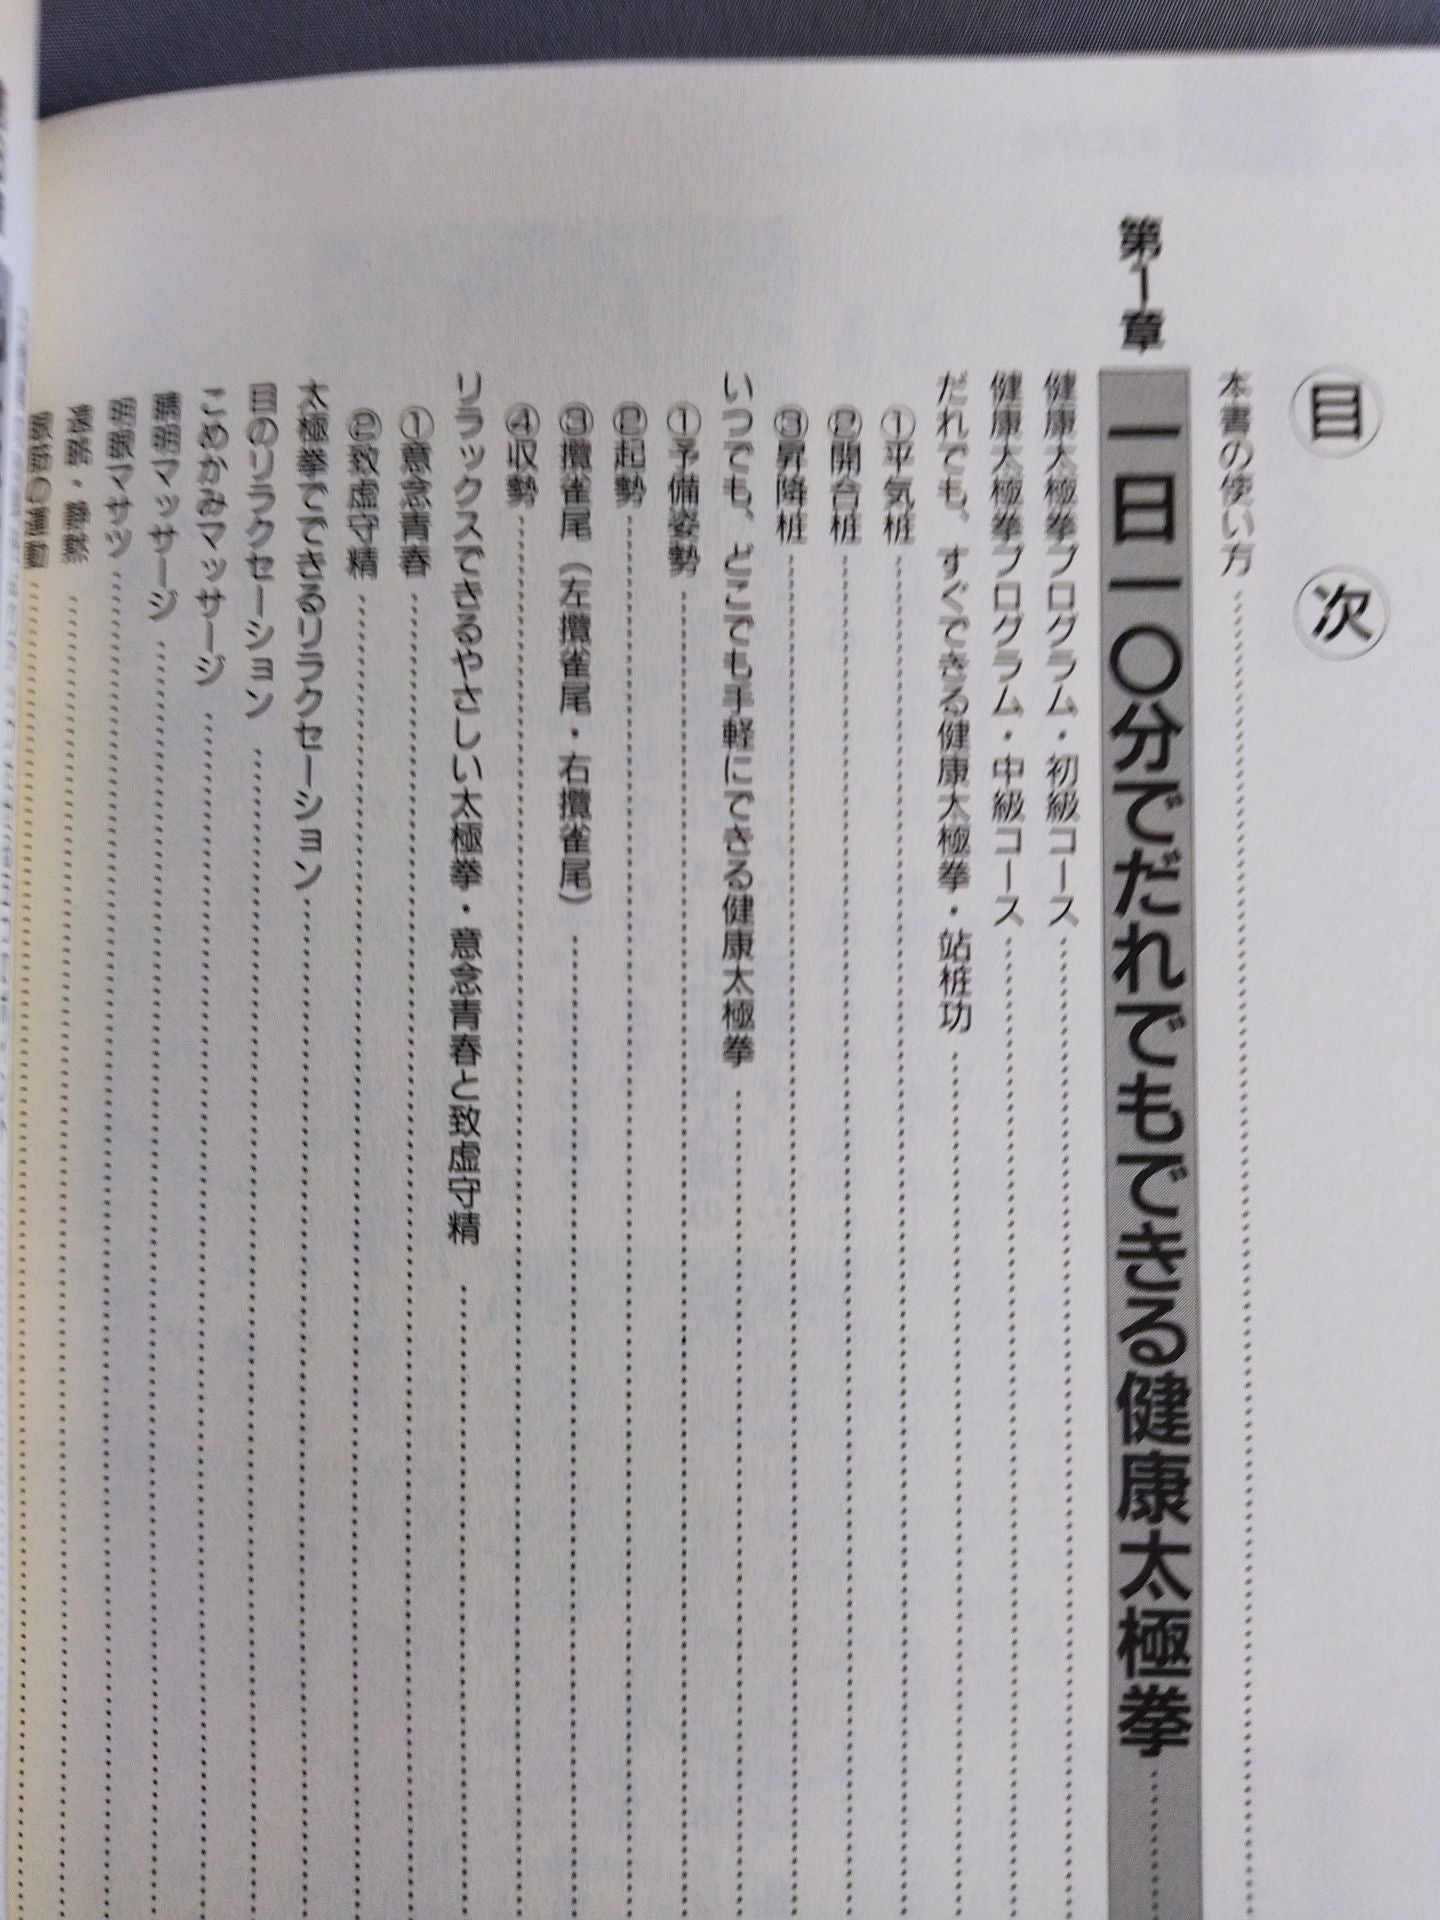 目次
本書の使い方
第1章 一日一〇分でだれでもできる健康太極拳
健康太極拳プログラム・初級コース
健康太極拳プログラム・中級コース
だれでも、すぐできる健康太極拳・站桩功
①平気桩
②開合桩
③昇降桩
いつでも、どこでも手軽にできる健康太極拳
①予備姿勢
②起勢
③攬雀尾（左攬雀尾・右攬雀尾）
④収勢
リラックスできるやさしい太極拳・意念青春と致虚守精
①意念青春
②致虚守精
太極拳でできるリラクセーション
目のリラクセーション
こめかみマッサージ
睛明マッサージ
明眼マサツ
眼筋の運動